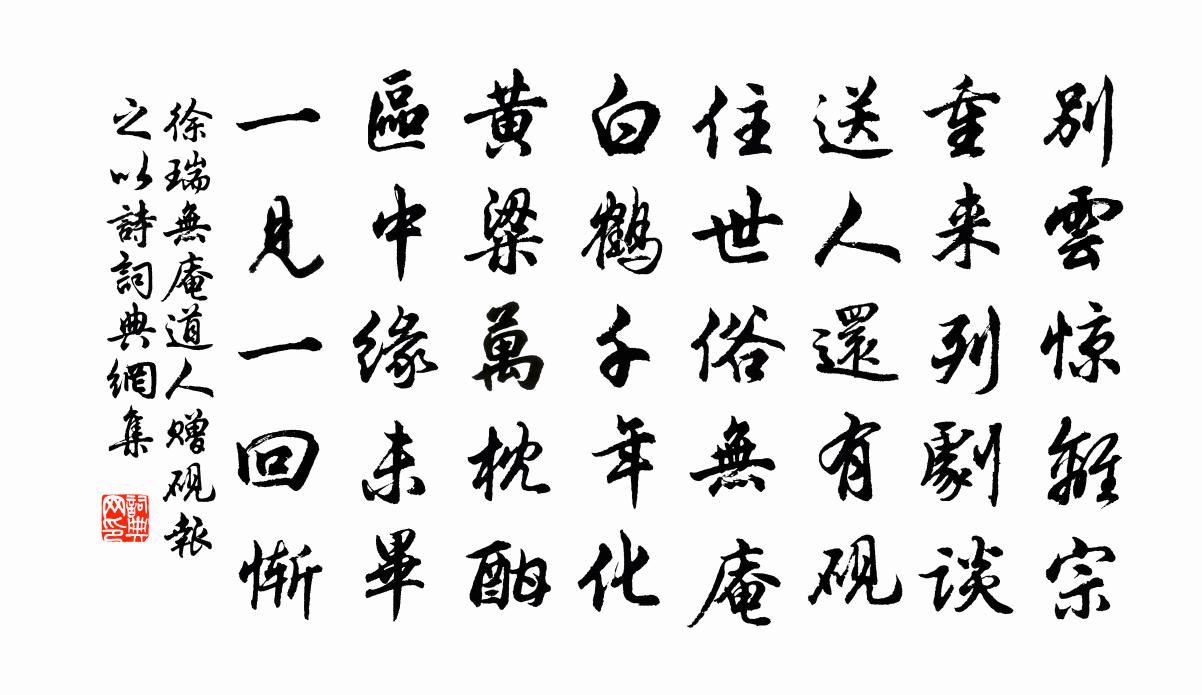 別雲惊離宗
重来列劇談
送人還有硯
住世俗無庵
白鶴千年化
黃粱萬枕酣
區中緣未畢
一見一回慚
徐瑞無庵道人贈硯報
之以詩詞典網集
詞典
网印